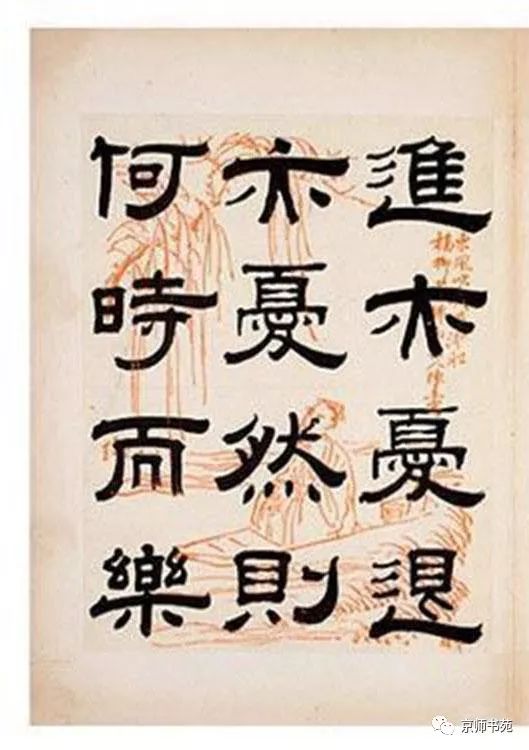 進亦憂退
亦憂然則
何時而樂
京师书苑